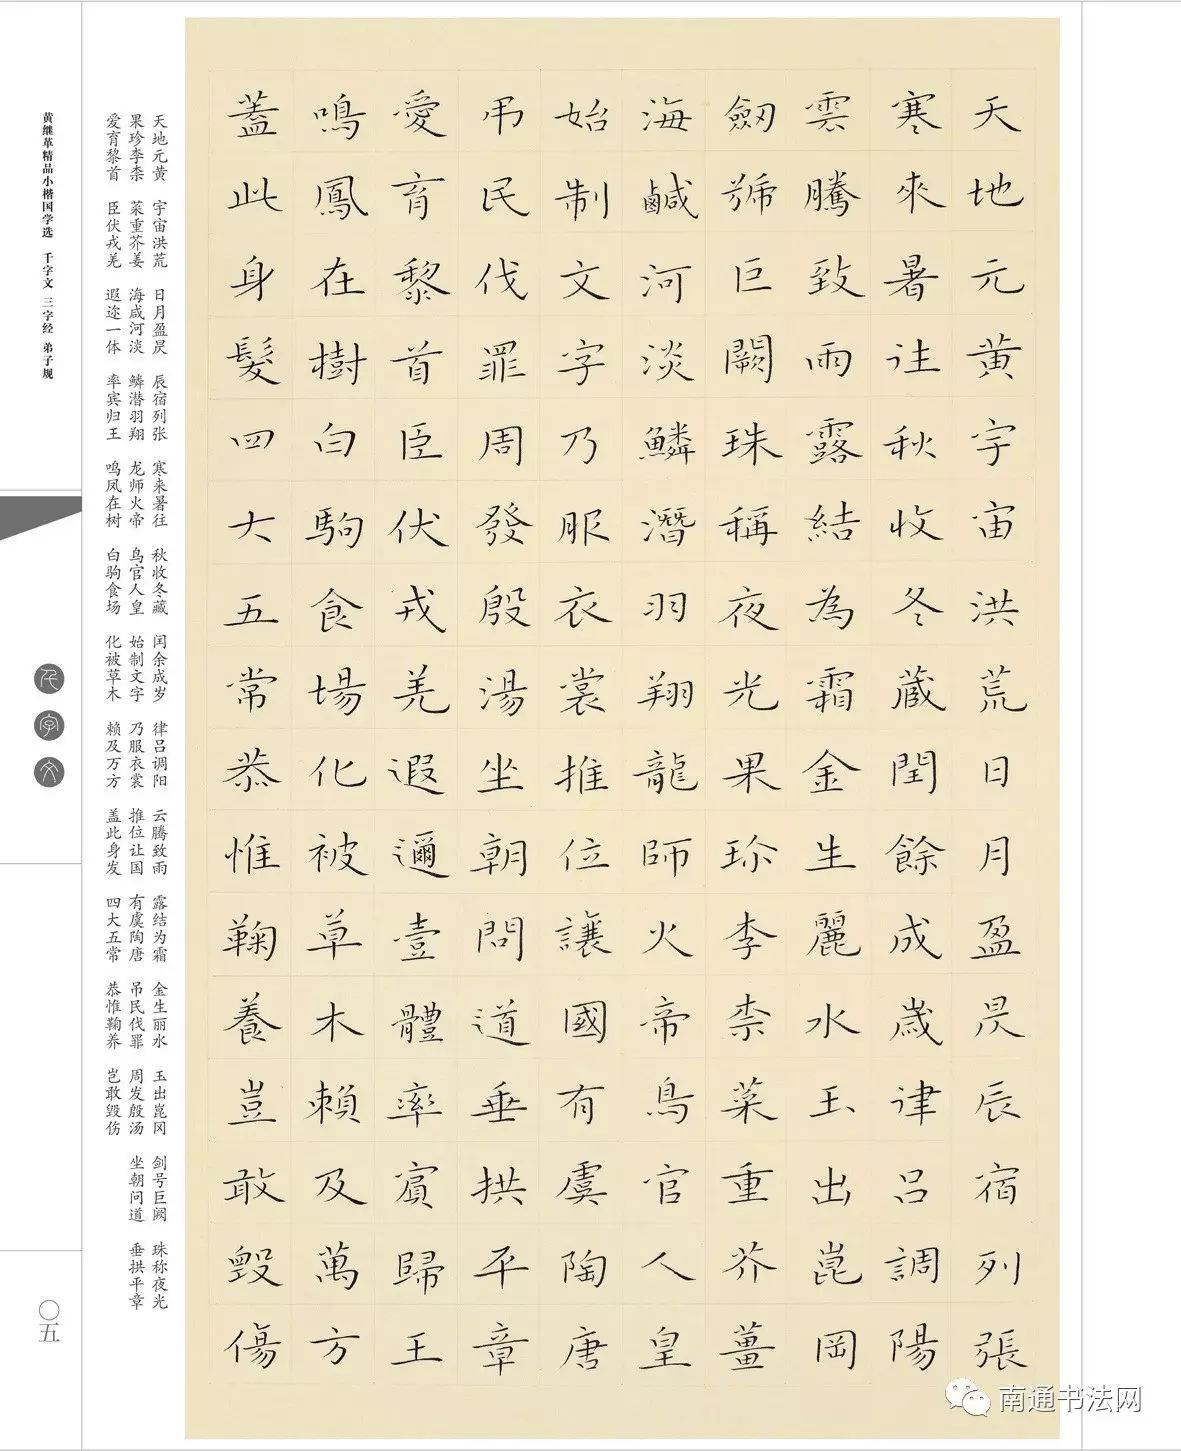 天地元黄宇宙洪荒日月盈昃辰宿列張
寒來暑往秋收冬藏閏餘成歲律呂調陽
雲騰致雨露結為霜金生麗水玉出崑岡
劒號巨闕珠稱夜光果珍李柰菜重芥薑
海鹹河淡鱗潛羽翔龍師火帝鳥官人皇
始制文字乃服衣裳推位讓國有虞陶唐
弔民伐罪周發殷湯坐朝問道垂拱平章
愛育黎首臣伏戎羌遐邇壹體率賓歸王
鳴鳳在樹白駒食場化被草木賴及萬方
蓋此身髮四大五常恭惟鞠養豈敢毀傷
天地元黄 宇宙洪荒 日月盈昃 辰宿列张 寒来暑往 秋收冬藏 闰余成岁 律吕调阳 云腾致雨 露结为霜 金生丽水 玉出崑冈 剑号巨阙 珠称夜光
果珍李柰 菜重芥姜 海咸河淡 鳞潜羽翔 龙师火帝 鸟官人皇 始制文字 乃服衣裳 推位让国 有虞陶唐 吊民伐罪 周发殷汤 坐朝问道 垂拱平章
爱育黎首 臣伏戎羌 遐迩一体 率宾归王 鸣凤在树 白驹食场 化被草木 赖及万方 盖此身发 四大五常 恭惟鞠养 岂敢毁伤
黄继革精品小楷国学选 千字文 三字经 弟子规
千字文
〇五
南通书法网